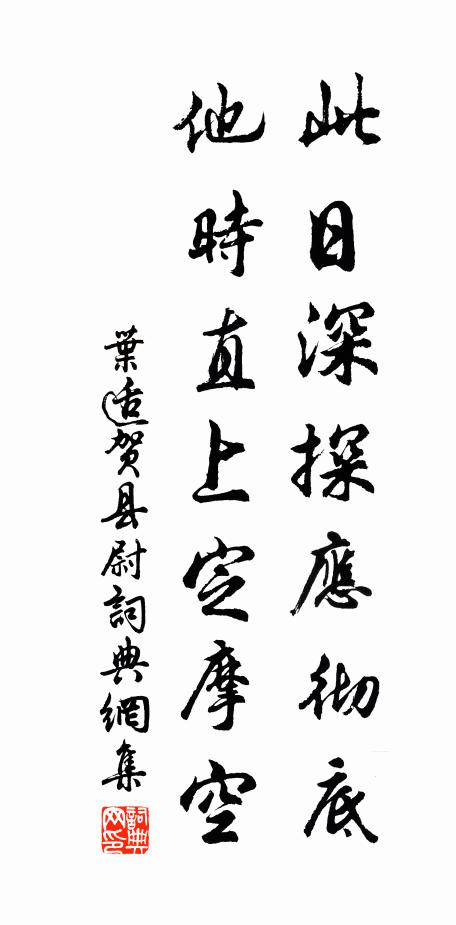 此日深探應彻底
他時直上定摩空
葉适贺县尉詞典網集
詞典网印